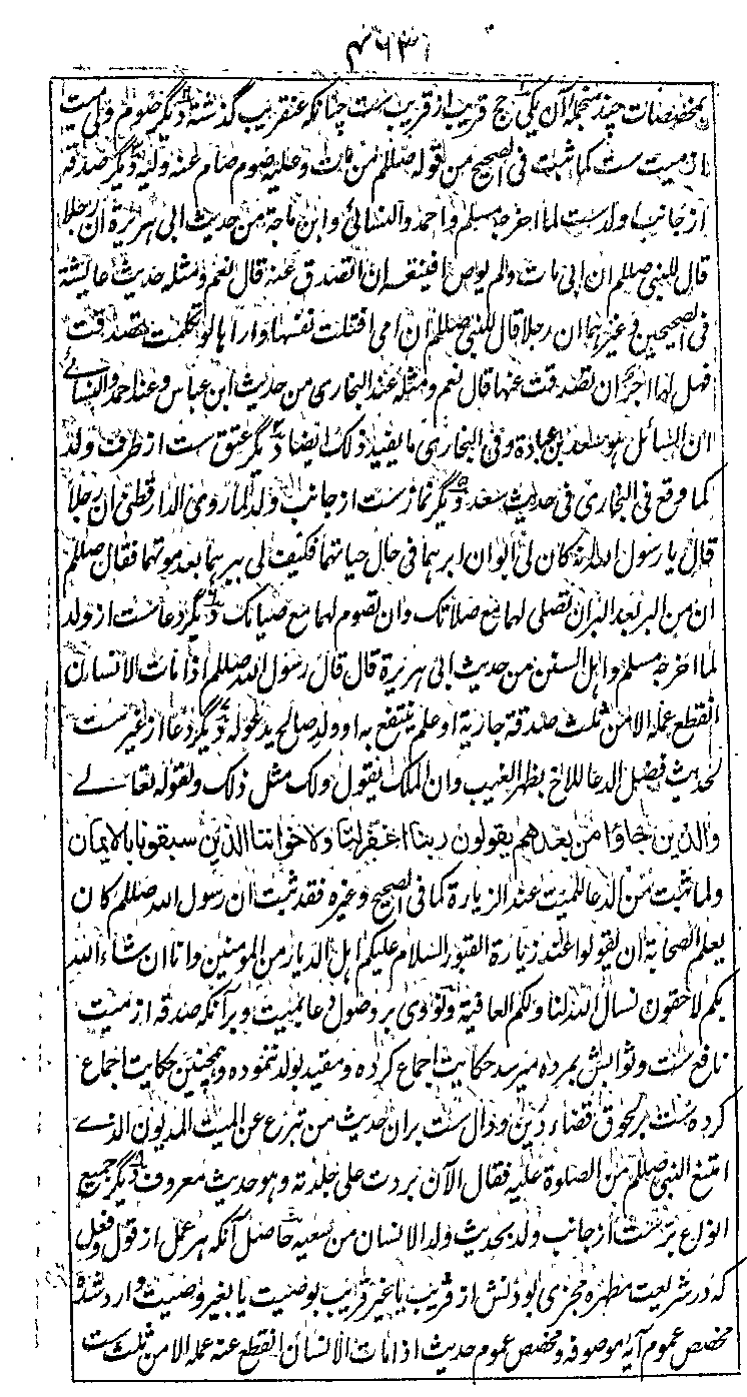 ۴۶۳
بمخصصات چند منجمله آن یکی حج قریب از قریب ست چنانکه عنقریب گذشته دیگر صوم ولی میت
از میت ست کما ثبت فی الصحیح من قوله صللم من مات وعلیه صوم صام عنه ولیه دیگر صدقه
از جانب ولدست لما اخرجه مسلم واحمد والنسائی وابن ماجة من حدیث ابی هریرة ان رجلا
قال للنبی صللم ان ابی مات ولم یوص افینفعه ان اتصدق عنه قال نعم ومثله حدیث عایشة
فی الصحیحین وغیرهما ان رجلا قال للنبی صللم ان امی افتلتت نفسها واراها لو تکلمت تصدقت
فهل لها اجر ان تصدقت عنها قال نعم ومثله عند البخاری من حدیث ابن عباس وعند احمد والنسائے
ان السائل هو سعد بن عبادة وفی البخاری ما یفید ذلک ایضا دیگر عتق ست از طرف ولد
کما وقع فی البخاری فی حدیث سعد دیگر نمازست از جانب ولد لما روی الدارقطنی ان رجلا
قال یا رسول الله انه کان لی ابوان ابرهما فی حال حیاتهما فکیف لی ببرهما بعد موتهما فقال صللم
ان من البر بعد البر ان تصلی لهما مع صلاتک وان تصوم لهما مع صیامک دیگر دعاست از ولد
لما اخرجه مسلم واهل السنن من حدیث ابی هریرة قال قال رسول الله صللم اذا مات الانسان
انقطع عمله الا من ثلث صدقة جاریة او علم ینتفع به او ولد صالح یدعو له دیگر دعا از غیر ست
لحدیث فضل الدعا للاخ بظهر الغیب وان الملک یقول ولک مثل ذلک ولقوله تعالے
والذین جاؤا من بعدهم یقولون ربنا اغفر لنا ولاخواننا الذین سبقونا بالایمان
ولما ثبت من الدعا للمیت عند الزیارة کما فی الصحیح وغیره فقد ثبت ان رسول الله صللم کان
یعلم الصحابة ان یقولوا عند زیارة القبور السلام علیکم اهل الدیار من المومنین وانا ان شاء الله
بکم لاحقون نسال الله لنا ولکم العافیة ونووی بر وصول دعا بمیت وبر آنکه صدقه از میت
نافع ست وثوابش بمرده میرسد حکایت اجماع کرده ومقید بولد ننموده وهمچنین حکایت اجماع
کرده ست بر لحوق قضاء دین ودال ست بران حدیث من تبرع عن المیت المدیون الذے
امتنع النبی صللم من الصلوة علیه فقال الآن بردت علی جلدته وهو حدیث معروف دیگر جمیع
انواع برّست از جانب ولد بحدیث ولد الانسان من سعیه حاصل آنکه هر عمل از قول وفعل
که در شریعت مطهره مجزی بودنش از قریب یا غیر قریب بوصیت یا بغیر وصیت وارد شده
مخصص عموم آیه موصوفه ومخصص عموم حدیث اذا مات الانسان انقطع عنه عمله الا من ثلث ست